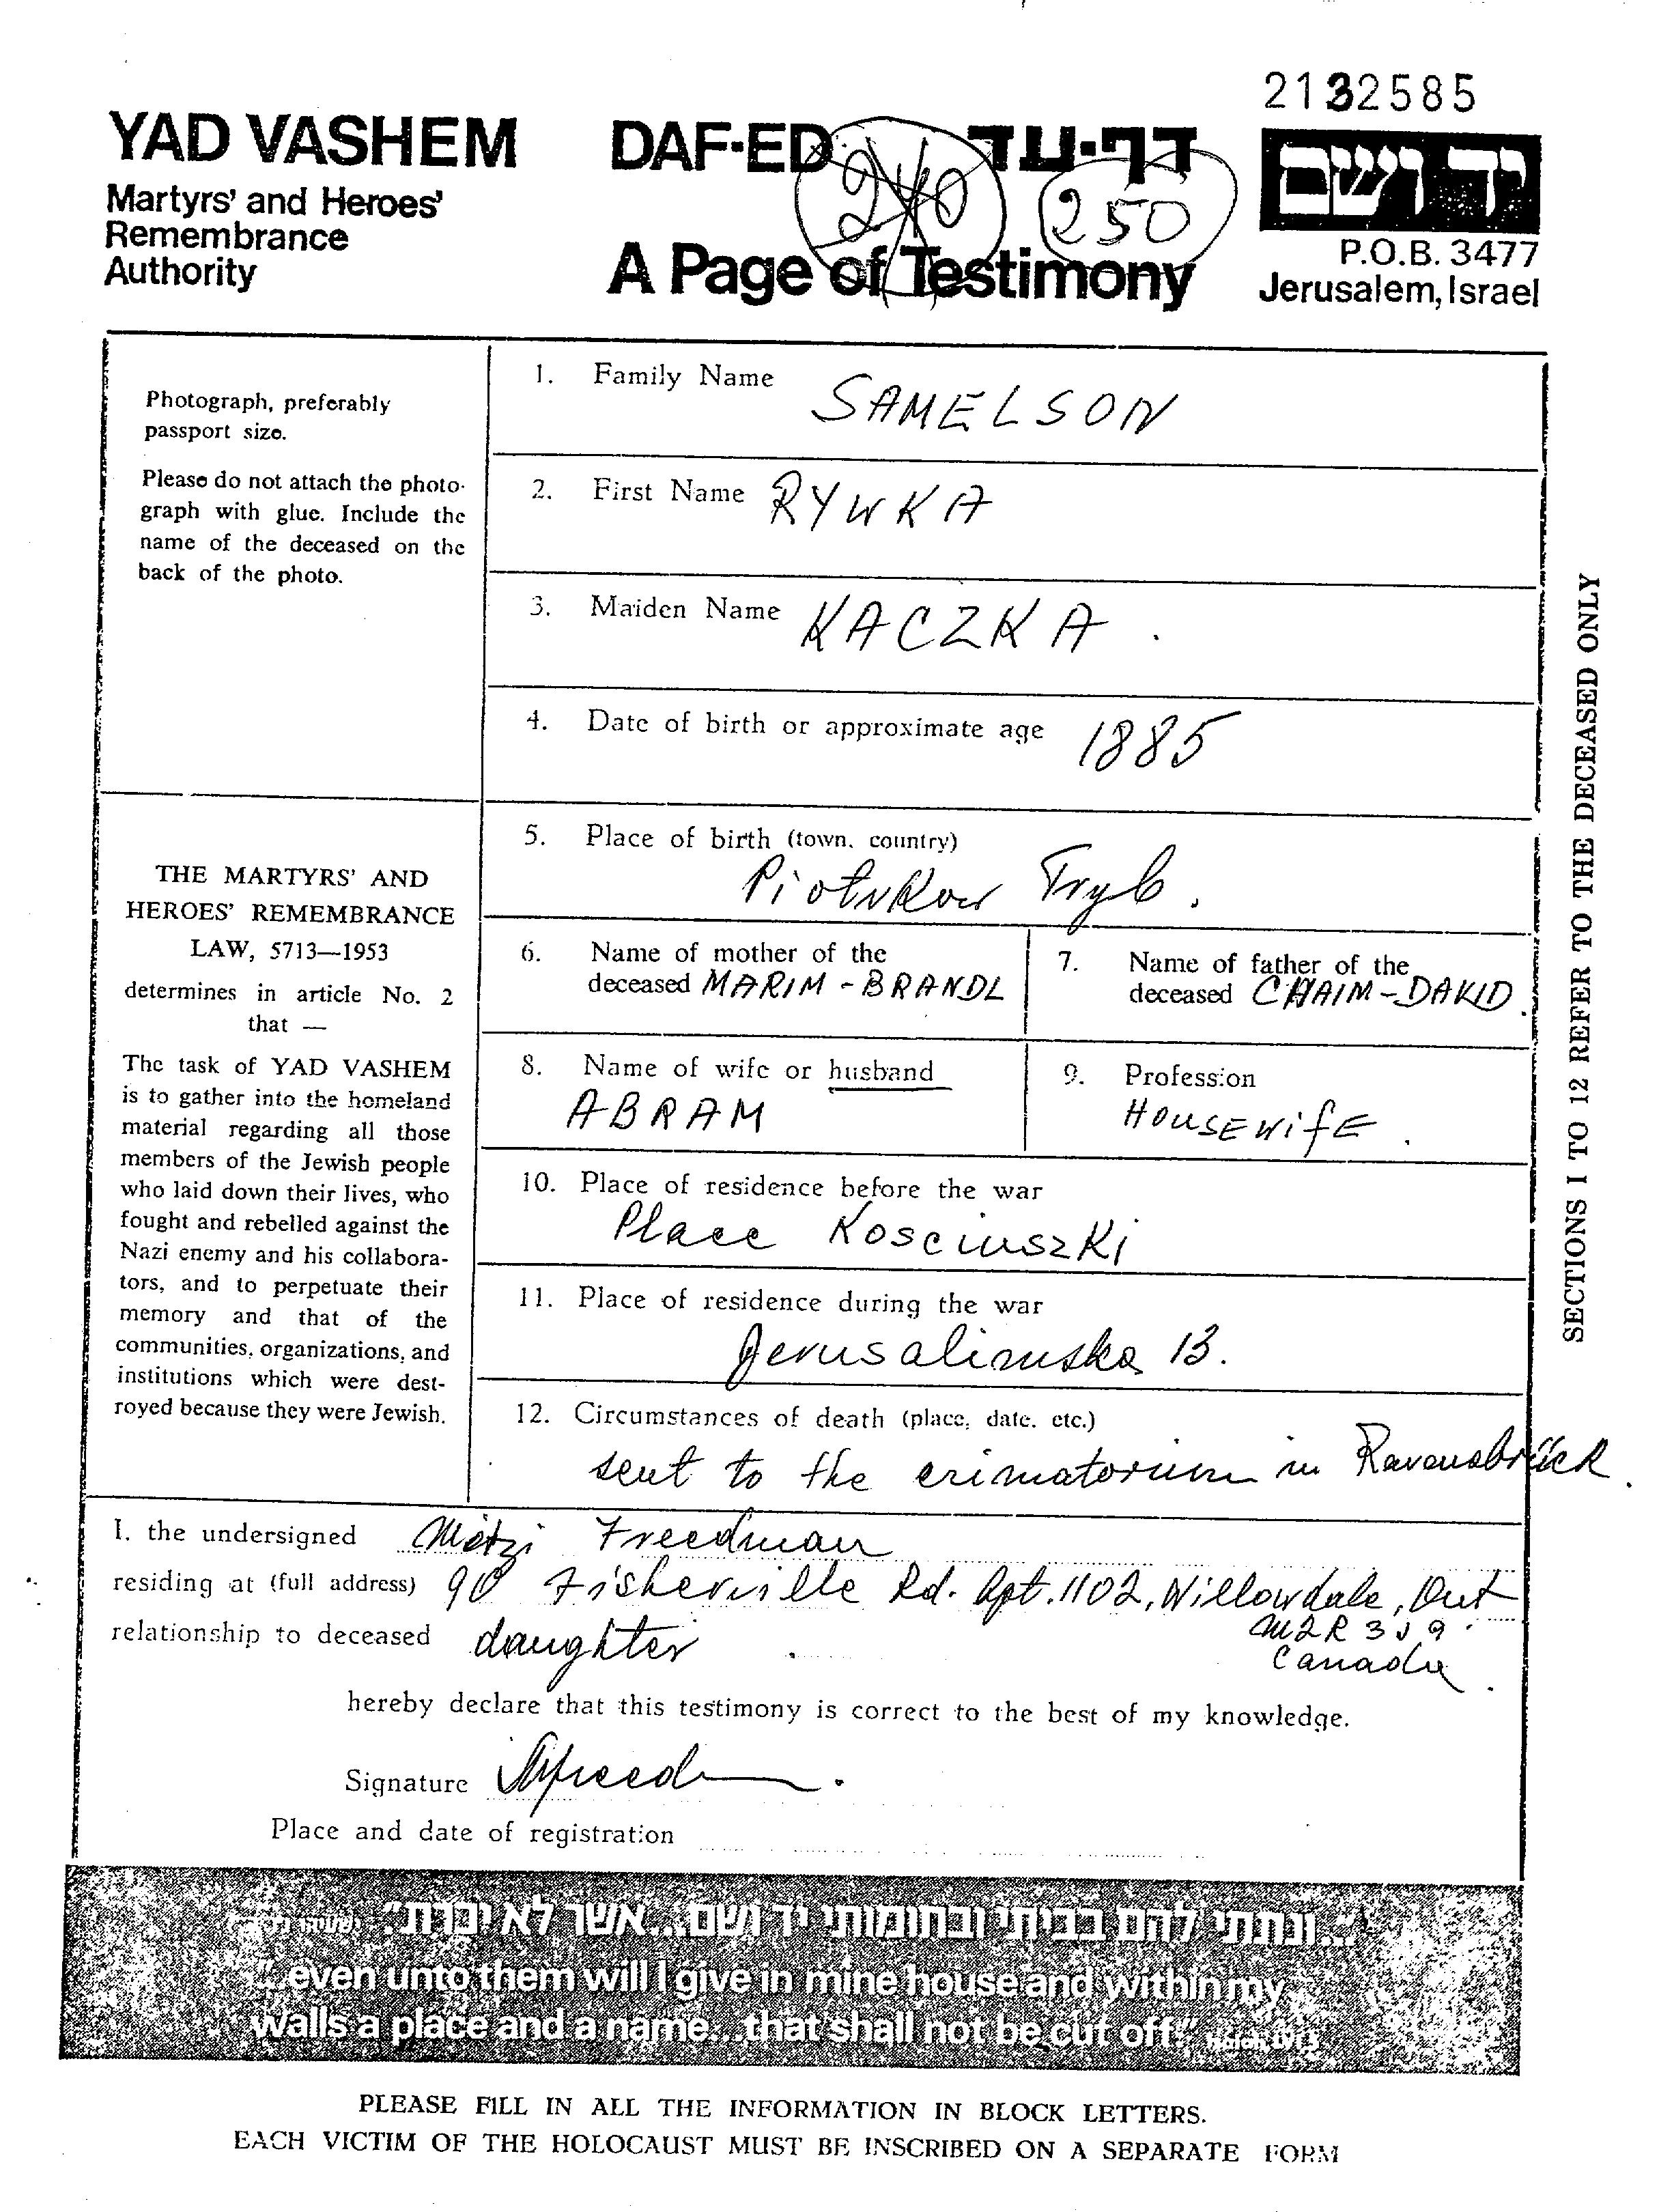 2132585
YAD VASHEM
Martyrs' and Heroes'
Remembrance
Authority
DAF-ED דף-עד
240 250
A Page of Testimony
יד ושם
P.O.B. 3477
Jerusalem, Israel
Photograph, preferably
passport size.
Please do not attach the photo-
graph with glue. Include the
name of the deceased on the
back of the photo.
THE MARTYRS' AND
HEROES' REMEMBRANCE
LAW, 5713—1953
determines in article No. 2
that —
The task of YAD VASHEM
is to gather into the homeland
material regarding all those
members of the Jewish people
who laid down their lives, who
fought and rebelled against the
Nazi enemy and his collabora-
tors, and to perpetuate their
memory and that of the
communities, organizations, and
institutions which were dest-
royed because they were Jewish.
1. Family Name SAMELSON
2. First Name RYWKA
3. Maiden Name KACZKA.
4. Date of birth or approximate age 1885
5. Place of birth (town, country)
Piotrkow Tryb.
6. Name of mother of the
deceased MARIM-BRANDL
7. Name of father of the
deceased CHAIM-DAWID.
8. Name of wife or husband
ABRAM
9. Profession
HOUSEWifE.
10. Place of residence before the war
Place Kosciuszki
11. Place of residence during the war
Jerusalimska 13.
12. Circumstances of death (place, date, etc.)
sent to the crimatorium in Ravensbrück.
SECTIONS 1 TO 12 REFER TO THE DECEASED ONLY
I, the undersigned Mietzi Freedman
residing at (full address) 90 Fisherville Rd. Apt. 1102, Willowdale, Ont
M2R 3J9.
Canada.
relationship to deceased daughter.
hereby declare that this testimony is correct to the best of my knowledge.
Signature
Place and date of registration
"...ונתתי להם בביתי ובחומותי יד ושם...אשר לא יכרת".
"...even unto them will I give in mine house and within my
walls a place and a name...that shall not be cut off."
PLEASE FILL IN ALL THE INFORMATION IN BLOCK LETTERS.
EACH VICTIM OF THE HOLOCAUST MUST BE INSCRIBED ON A SEPARATE FORM